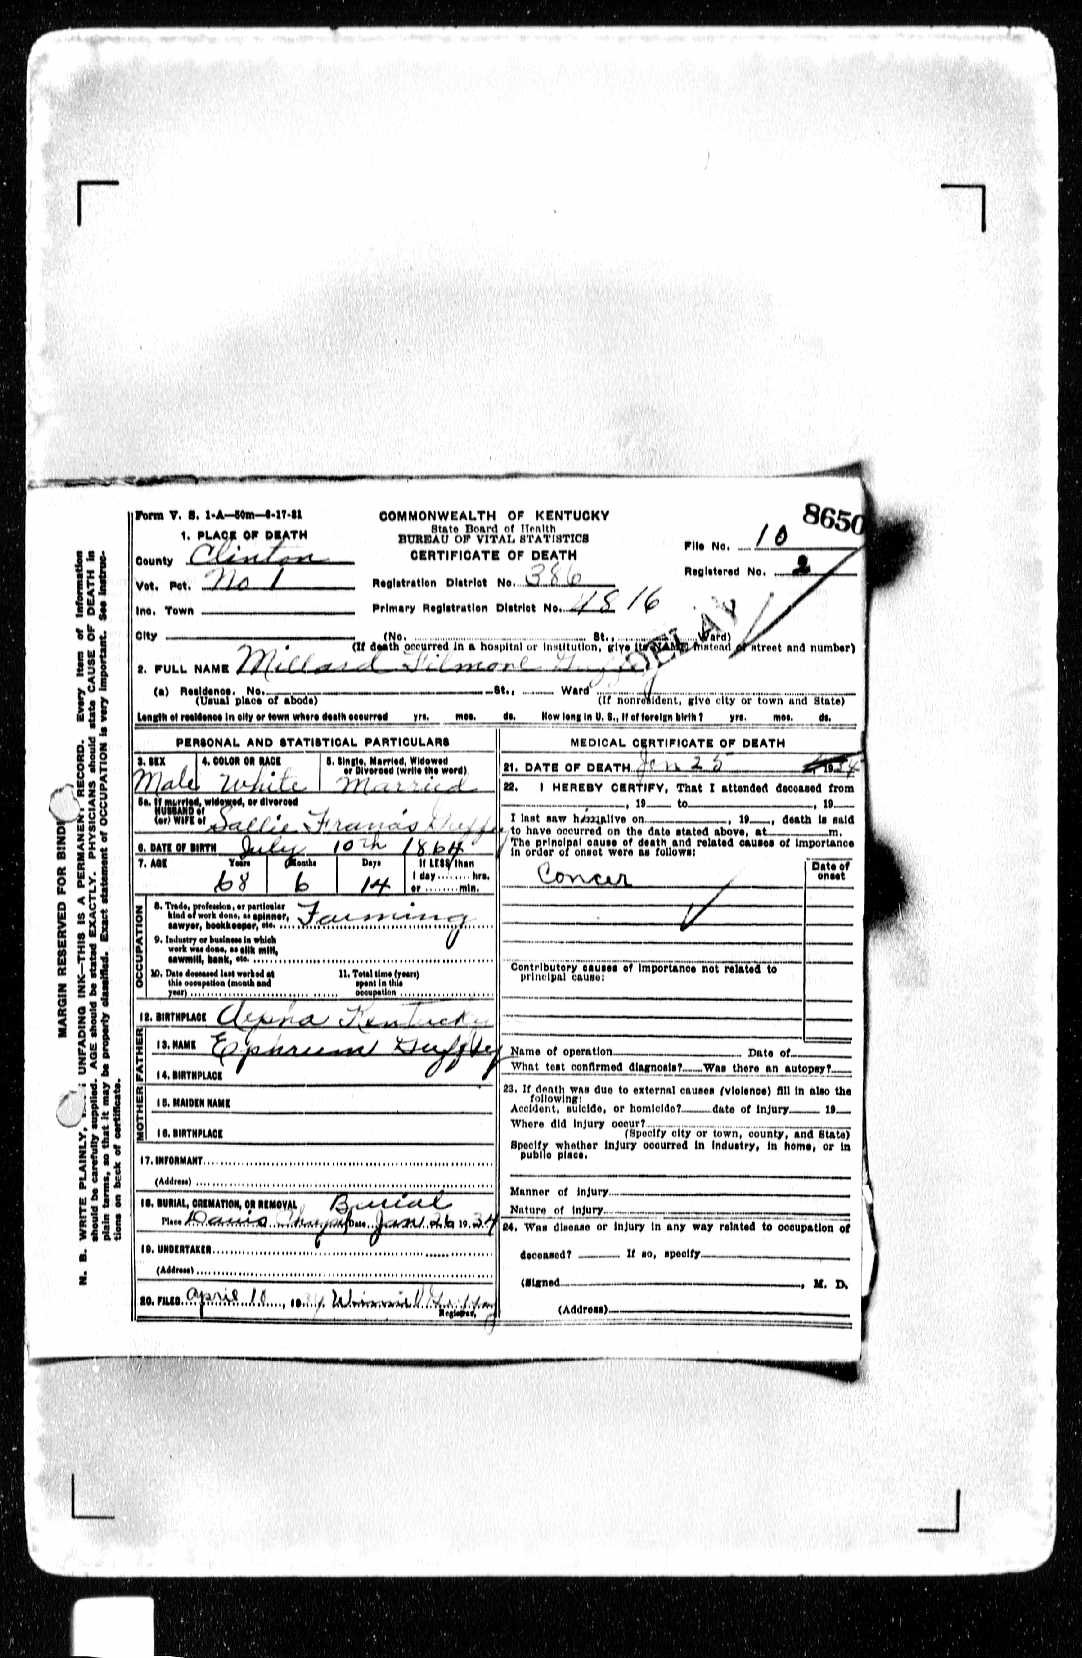 Form V. S. 1-A—50m—6-17-31
COMMONWEALTH OF KENTUCKY
State Board of Health
BUREAU OF VITAL STATISTICS
CERTIFICATE OF DEATH
8650
File No. 10
Registered No. 2
1. PLACE OF DEATH
County Clinton
Vot. Pct. No 1
Registration District No. 386
Inc. Town
Primary Registration District No. 4816
DELAY
City (No. St., Ward)
(If death occurred in a hospital or institution, give its NAME instead of street and number)
2. FULL NAME Millard Filmore Guffey
(a) Residence. No. St., Ward
(Usual place of abode) (If nonresident, give city or town and State)
Length of residence in city or town where death occurred yrs. mos. ds. How long in U. S., if of foreign birth? yrs. mos. ds.
PERSONAL AND STATISTICAL PARTICULARS
3. SEX 4. COLOR OR RACE 5. Single, Married, Widowed
or Divorced (write the word)
Male White Married
5a. If married, widowed, or divorced
HUSBAND of
(or) WIFE of Sallie Francis Guffey
6. DATE OF BIRTH July 10th 1864
7. AGE Years Months Days If LESS than
1 day hrs.
or min.
68 6 14
OCCUPATION
8. Trade, profession, or particular
kind of work done, as spinner,
sawyer, bookkeeper, etc. Farming
9. Industry or business in which
work was done, as silk mill,
sawmill, bank, etc.
10. Date deceased last worked at
this occupation (month and
year)
11. Total time (years)
spent in this
occupation
12. BIRTHPLACE Kentucky
FATHER
13. NAME Ephrium Guffey
14. BIRTHPLACE
MOTHER
15. MAIDEN NAME
16. BIRTHPLACE
17. INFORMANT
(Address)
18. BURIAL, CREMATION, OR REMOVAL Burial
Place Davis Date Jan 26 1934
19. UNDERTAKER
(Address)
20. FILED April 10, 19 Winnie
Registrar.
MEDICAL CERTIFICATE OF DEATH
21. DATE OF DEATH Jan 25 , 1934
22. I HEREBY CERTIFY, That I attended deceased from
, 19 to , 19
I last saw him alive on , 19 , death is said
to have occurred on the date stated above, at m.
The principal cause of death and related causes of importance
in order of onset were as follows:
Date of
onset
Concer
Contributory causes of importance not related to
principal cause:
Name of operation Date of
What test confirmed diagnosis? Was there an autopsy?
23. If death was due to external causes (violence) fill in also the
following:
Accident, suicide, or homicide? date of injury 19
Where did injury occur?
(Specify city or town, county, and State)
Specify whether injury occurred in industry, in home, or in
public place.
Manner of injury
Nature of injury
24. Was disease or injury in any way related to occupation of
deceased? If so, specify
(Signed , M. D.
(Address)
MARGIN RESERVED FOR BINDI
N. B. WRITE PLAINLY, UNFADING INK—THIS IS A PERMANENT RECORD. Every item of information
should be carefully supplied. AGE should be stated EXACTLY. PHYSICIANS should state CAUSE OF DEATH in
plain terms, so that it may be properly classified. Exact statement of OCCUPATION is very important. See instruc-
tions on back of certificate.